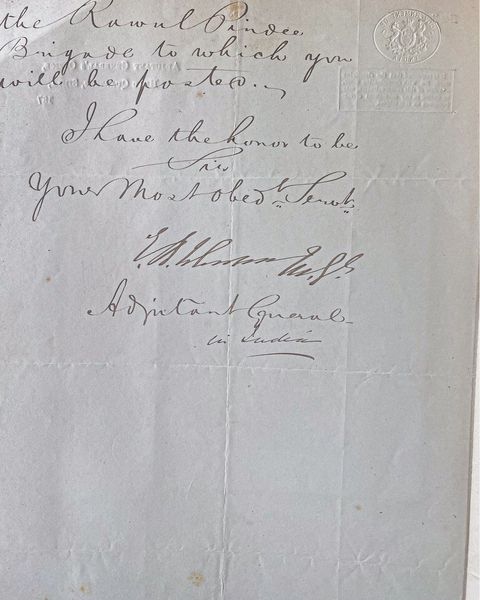 the Rawul Pindee
Brigade to which you
will be posted.
I have the honor to be
Sir
Your Most Obedt. Servt.
Adjutant General
in India